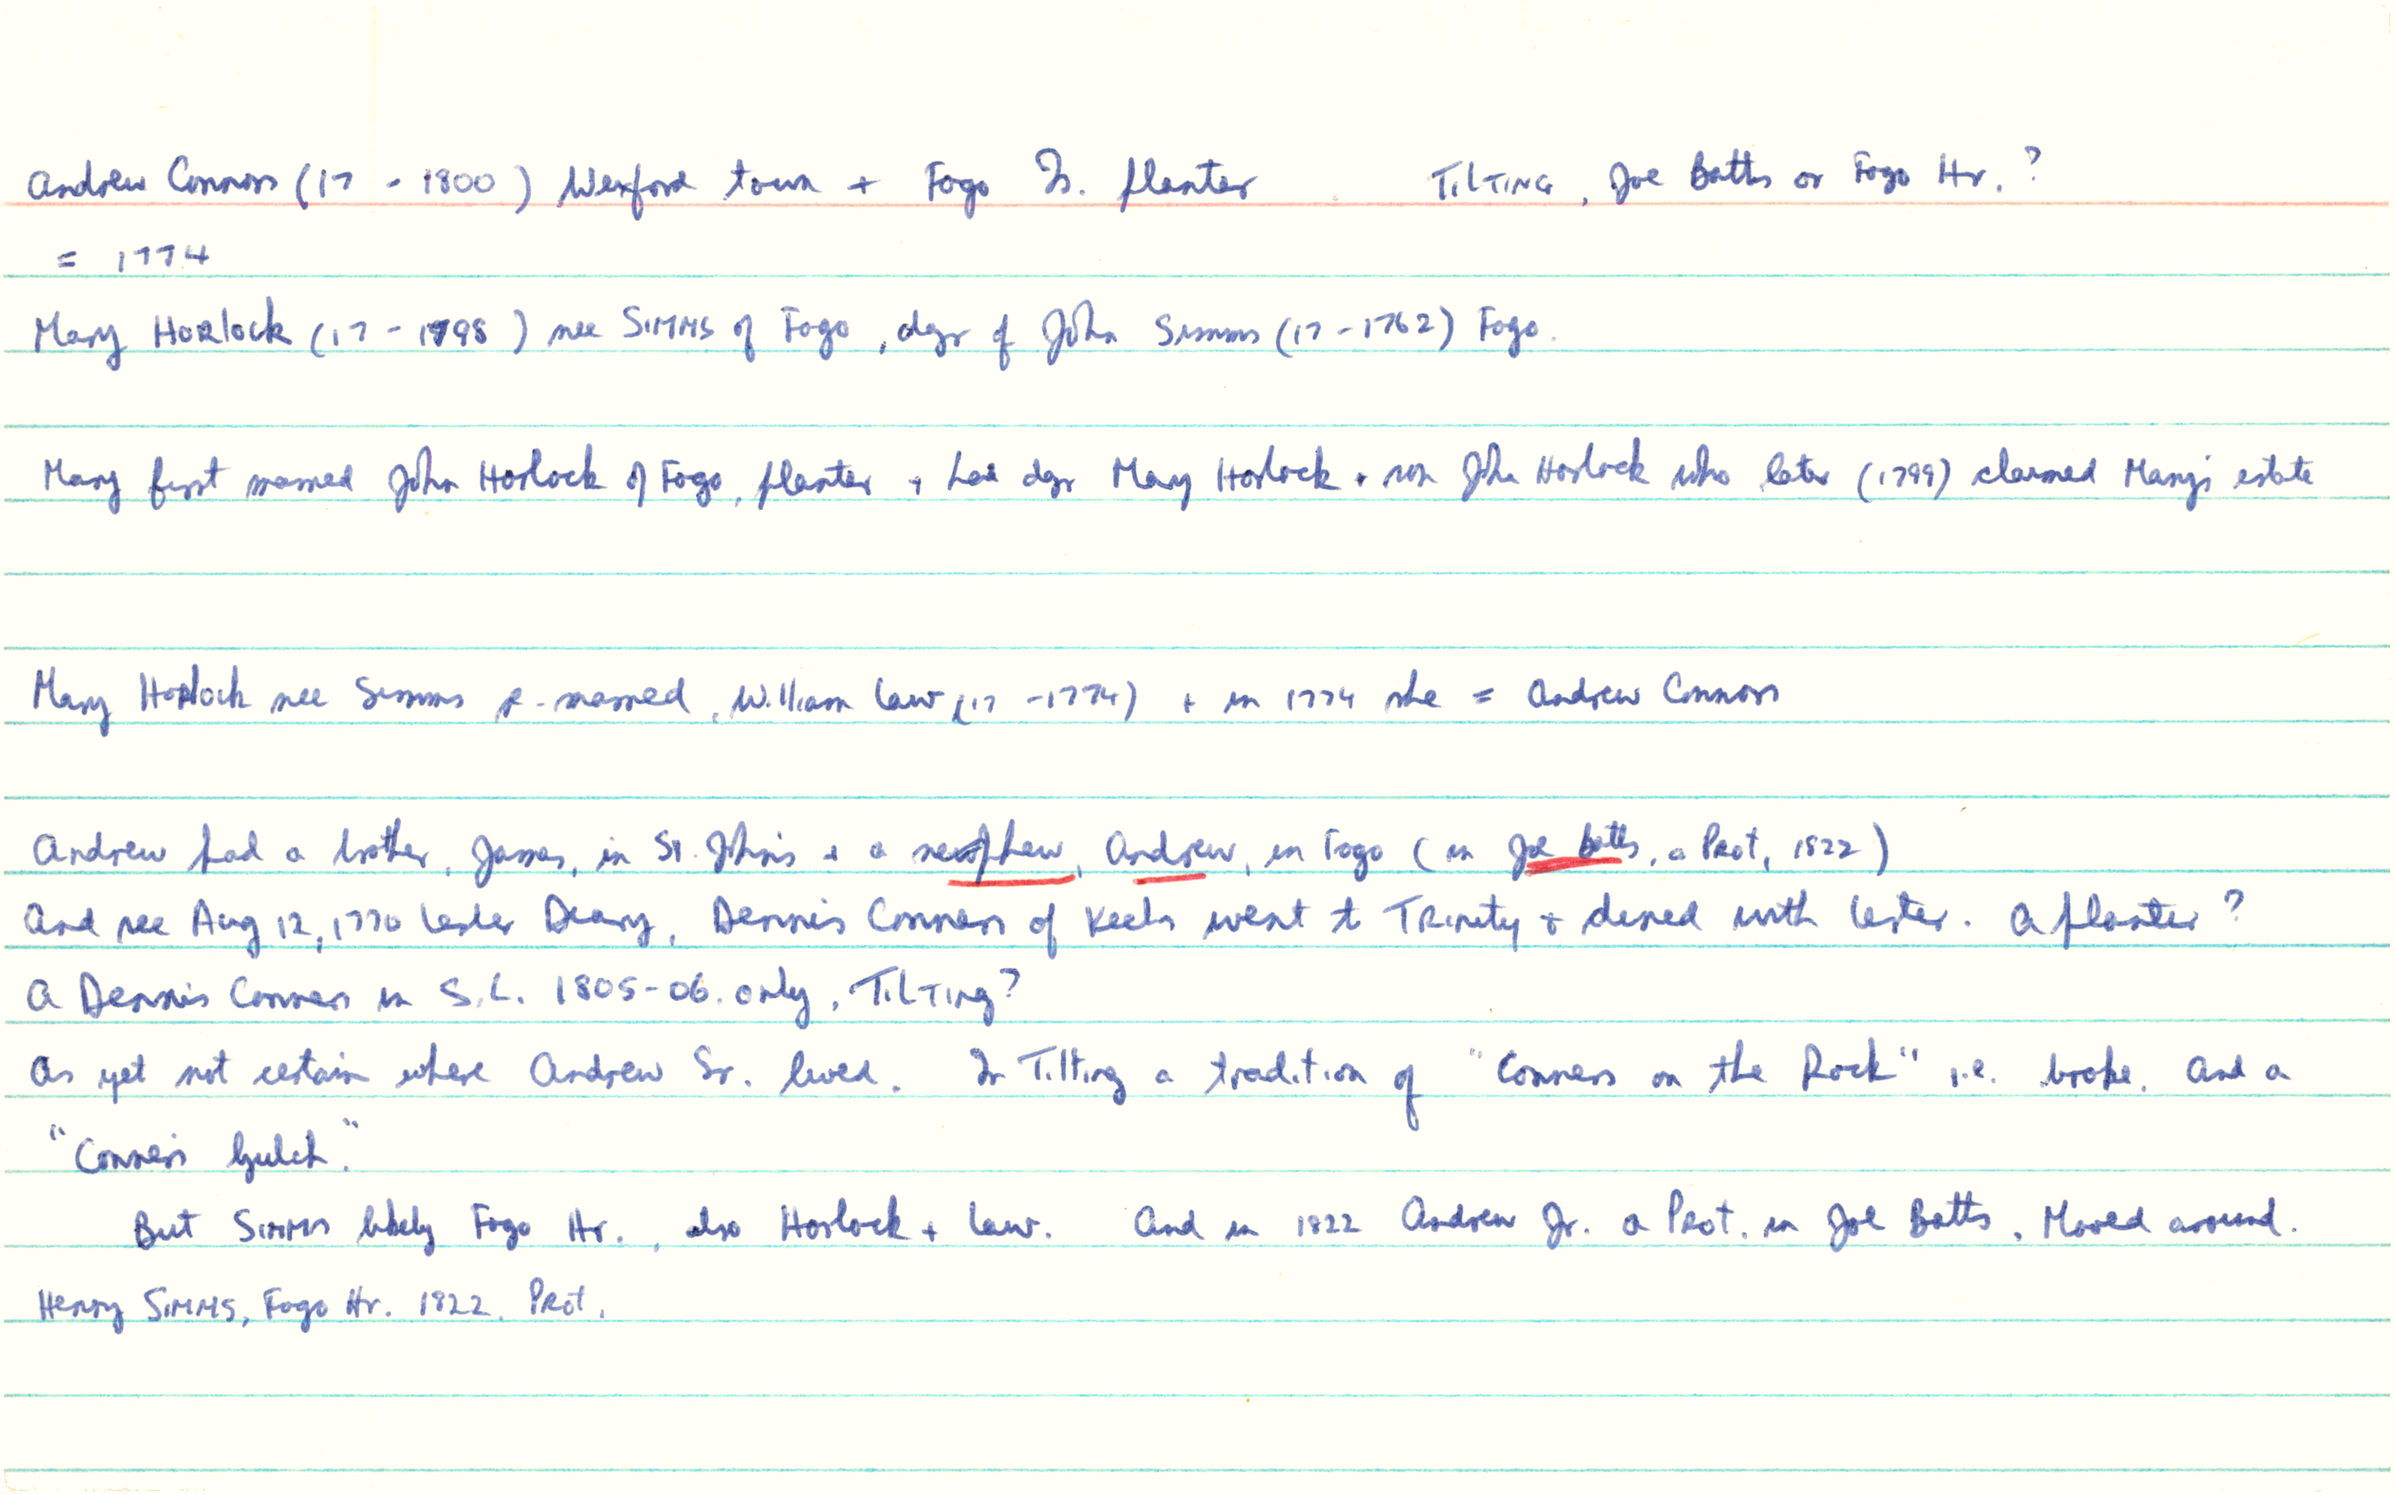 Andrew Connors (17 - 1800) Wexford town + Fogo Is. planter TILTING, Joe Batts or Fogo Hr.?
= 1774
Mary Horlock (17 - 1798) nee SIMMS of Fogo, dgr of John Simms (17 - 1762) Fogo.
Mary first married John Horlock of Fogo, planter + had dgr Mary Horlock + son John Horlock who later (1799) claimed Mary's estate
Mary Horlock nee Simms re-married, William Law (17 - 1774) + in 1774 she = Andrew Connors
Andrew had a brother, James, in St. John's + a nephew, Andrew, in Fogo (in Joe Batts, a Prot, 1822)
And see Aug 12, 1770 Lester Diary, Dennis Conners of Keels went to Trinity + dined with Lester. A planter?
A Dennis Conners in S.L. 1805-06 only, Tilting?
As yet not certain where Andrew Sr. lived. In Tilting a tradition of "Conners on the Rock" i.e. broke. And a
"Conners Gulch."
But Simms likely Fogo Hr., also Horlock + Law. And in 1822 Andrew Jr. a Prot. in Joe Batts. Moved around.
Henry SIMMS, Fogo Hr. 1822. Prot.